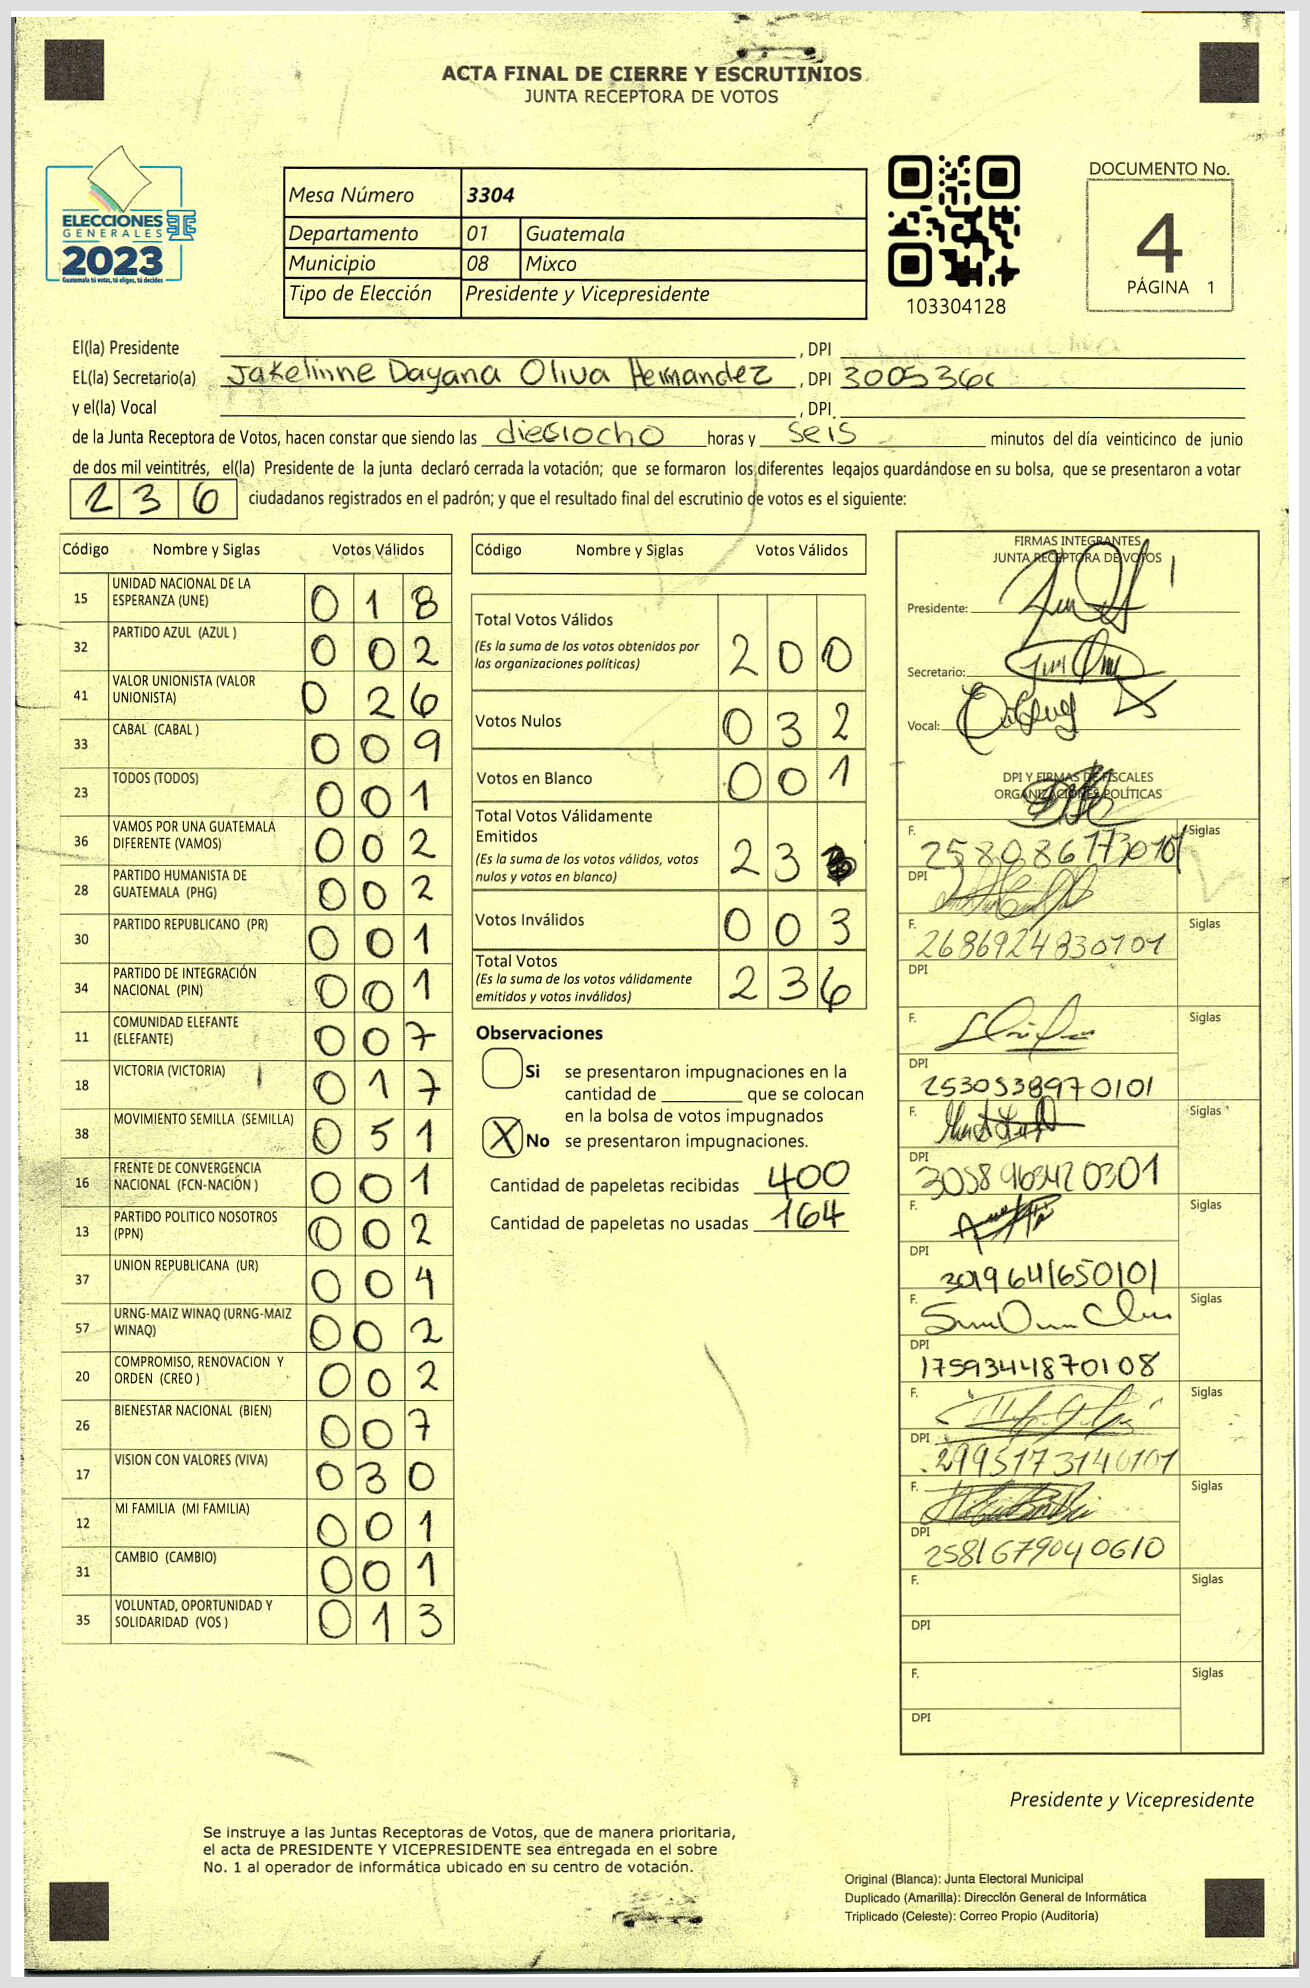 ACTA FINAL DE CIERRE Y ESCRUTINIOS
JUNTA RECEPTORA DE VOTOS
ELECCIONES
GENERALES
2023
Guatemala tú votas, tú eliges, tú decides
Mesa Número 3304
Departamento 01 Guatemala
Municipio 08 Mixco
Tipo de Elección Presidente y Vicepresidente
103304128
DOCUMENTO No.
4
PÁGINA 1
El(la) Presidente , DPI
EL(la) Secretario(a) Jakelinne Dayana Oliva Hernandez , DPI 300536
y el(la) Vocal , DPI.
de la Junta Receptora de Votos, hacen constar que siendo las dieciocho horas y seis minutos del día veinticinco de junio
de dos mil veintitrés, el(la) Presidente de la junta declaró cerrada la votación; que se formaron los diferentes legajos guardándose en su bolsa, que se presentaron a votar
236 ciudadanos registrados en el padrón; y que el resultado final del escrutinio de votos es el siguiente:
Código Nombre y Siglas Votos Válidos
15 UNIDAD NACIONAL DE LA ESPERANZA (UNE) 018
32 PARTIDO AZUL (AZUL ) 002
41 VALOR UNIONISTA (VALOR UNIONISTA) 026
33 CABAL (CABAL ) 009
23 TODOS (TODOS) 001
36 VAMOS POR UNA GUATEMALA DIFERENTE (VAMOS) 002
28 PARTIDO HUMANISTA DE GUATEMALA (PHG) 002
30 PARTIDO REPUBLICANO (PR) 001
34 PARTIDO DE INTEGRACIÓN NACIONAL (PIN) 001
11 COMUNIDAD ELEFANTE (ELEFANTE) 007
18 VICTORIA (VICTORIA) 017
38 MOVIMIENTO SEMILLA (SEMILLA) 051
16 FRENTE DE CONVERGENCIA NACIONAL (FCN-NACIÓN ) 001
13 PARTIDO POLITICO NOSOTROS (PPN) 002
37 UNION REPUBLICANA (UR) 004
57 URNG-MAIZ WINAQ (URNG-MAIZ WINAQ) 002
20 COMPROMISO, RENOVACION Y ORDEN (CREO ) 002
26 BIENESTAR NACIONAL (BIEN) 007
17 VISION CON VALORES (VIVA) 030
12 MI FAMILIA (MI FAMILIA) 001
31 CAMBIO (CAMBIO) 001
35 VOLUNTAD, OPORTUNIDAD Y SOLIDARIDAD (VOS ) 013
Código Nombre y Siglas Votos Válidos
Total Votos Válidos 200
(Es la suma de los votos obtenidos por
las organizaciones políticas)
Votos Nulos 032
Votos en Blanco 001
Total Votos Válidamente
Emitidos 233
(Es la suma de los votos válidos, votos
nulos y votos en blanco)
Votos Inválidos 003
Total Votos 236
(Es la suma de los votos válidamente
emitidos y votos inválidos)
Observaciones
Si se presentaron impugnaciones en la
cantidad de que se colocan
en la bolsa de votos impugnados
X No se presentaron impugnaciones.
Cantidad de papeletas recibidas 400
Cantidad de papeletas no usadas 164
FIRMAS INTEGRANTES
JUNTA RECEPTORA DE VOTOS
Presidente:
Secretario:
Vocal:
DPI Y FIRMAS DE FISCALES
ORGANIZACIONES POLÍTICAS
F. Siglas
DPI
F. 2686924830101 Siglas
DPI
F. Siglas
DPI 2530538970101
F. Siglas
DPI 3058963420301
F. Siglas
DPI 3019641650101
F. Siglas
DPI 1759344870108
F. Siglas
DPI 2995173140101
F. Siglas
DPI 2581679040610
F. Siglas
DPI
F. Siglas
DPI
Presidente y Vicepresidente
Se instruye a las Juntas Receptoras de Votos, que de manera prioritaria,
el acta de PRESIDENTE Y VICEPRESIDENTE sea entregada en el sobre
No. 1 al operador de informática ubicado en su centro de votación.
Original (Blanca): Junta Electoral Municipal
Duplicado (Amarilla): Dirección General de Informática
Triplicado (Celeste): Correo Propio (Auditoria)